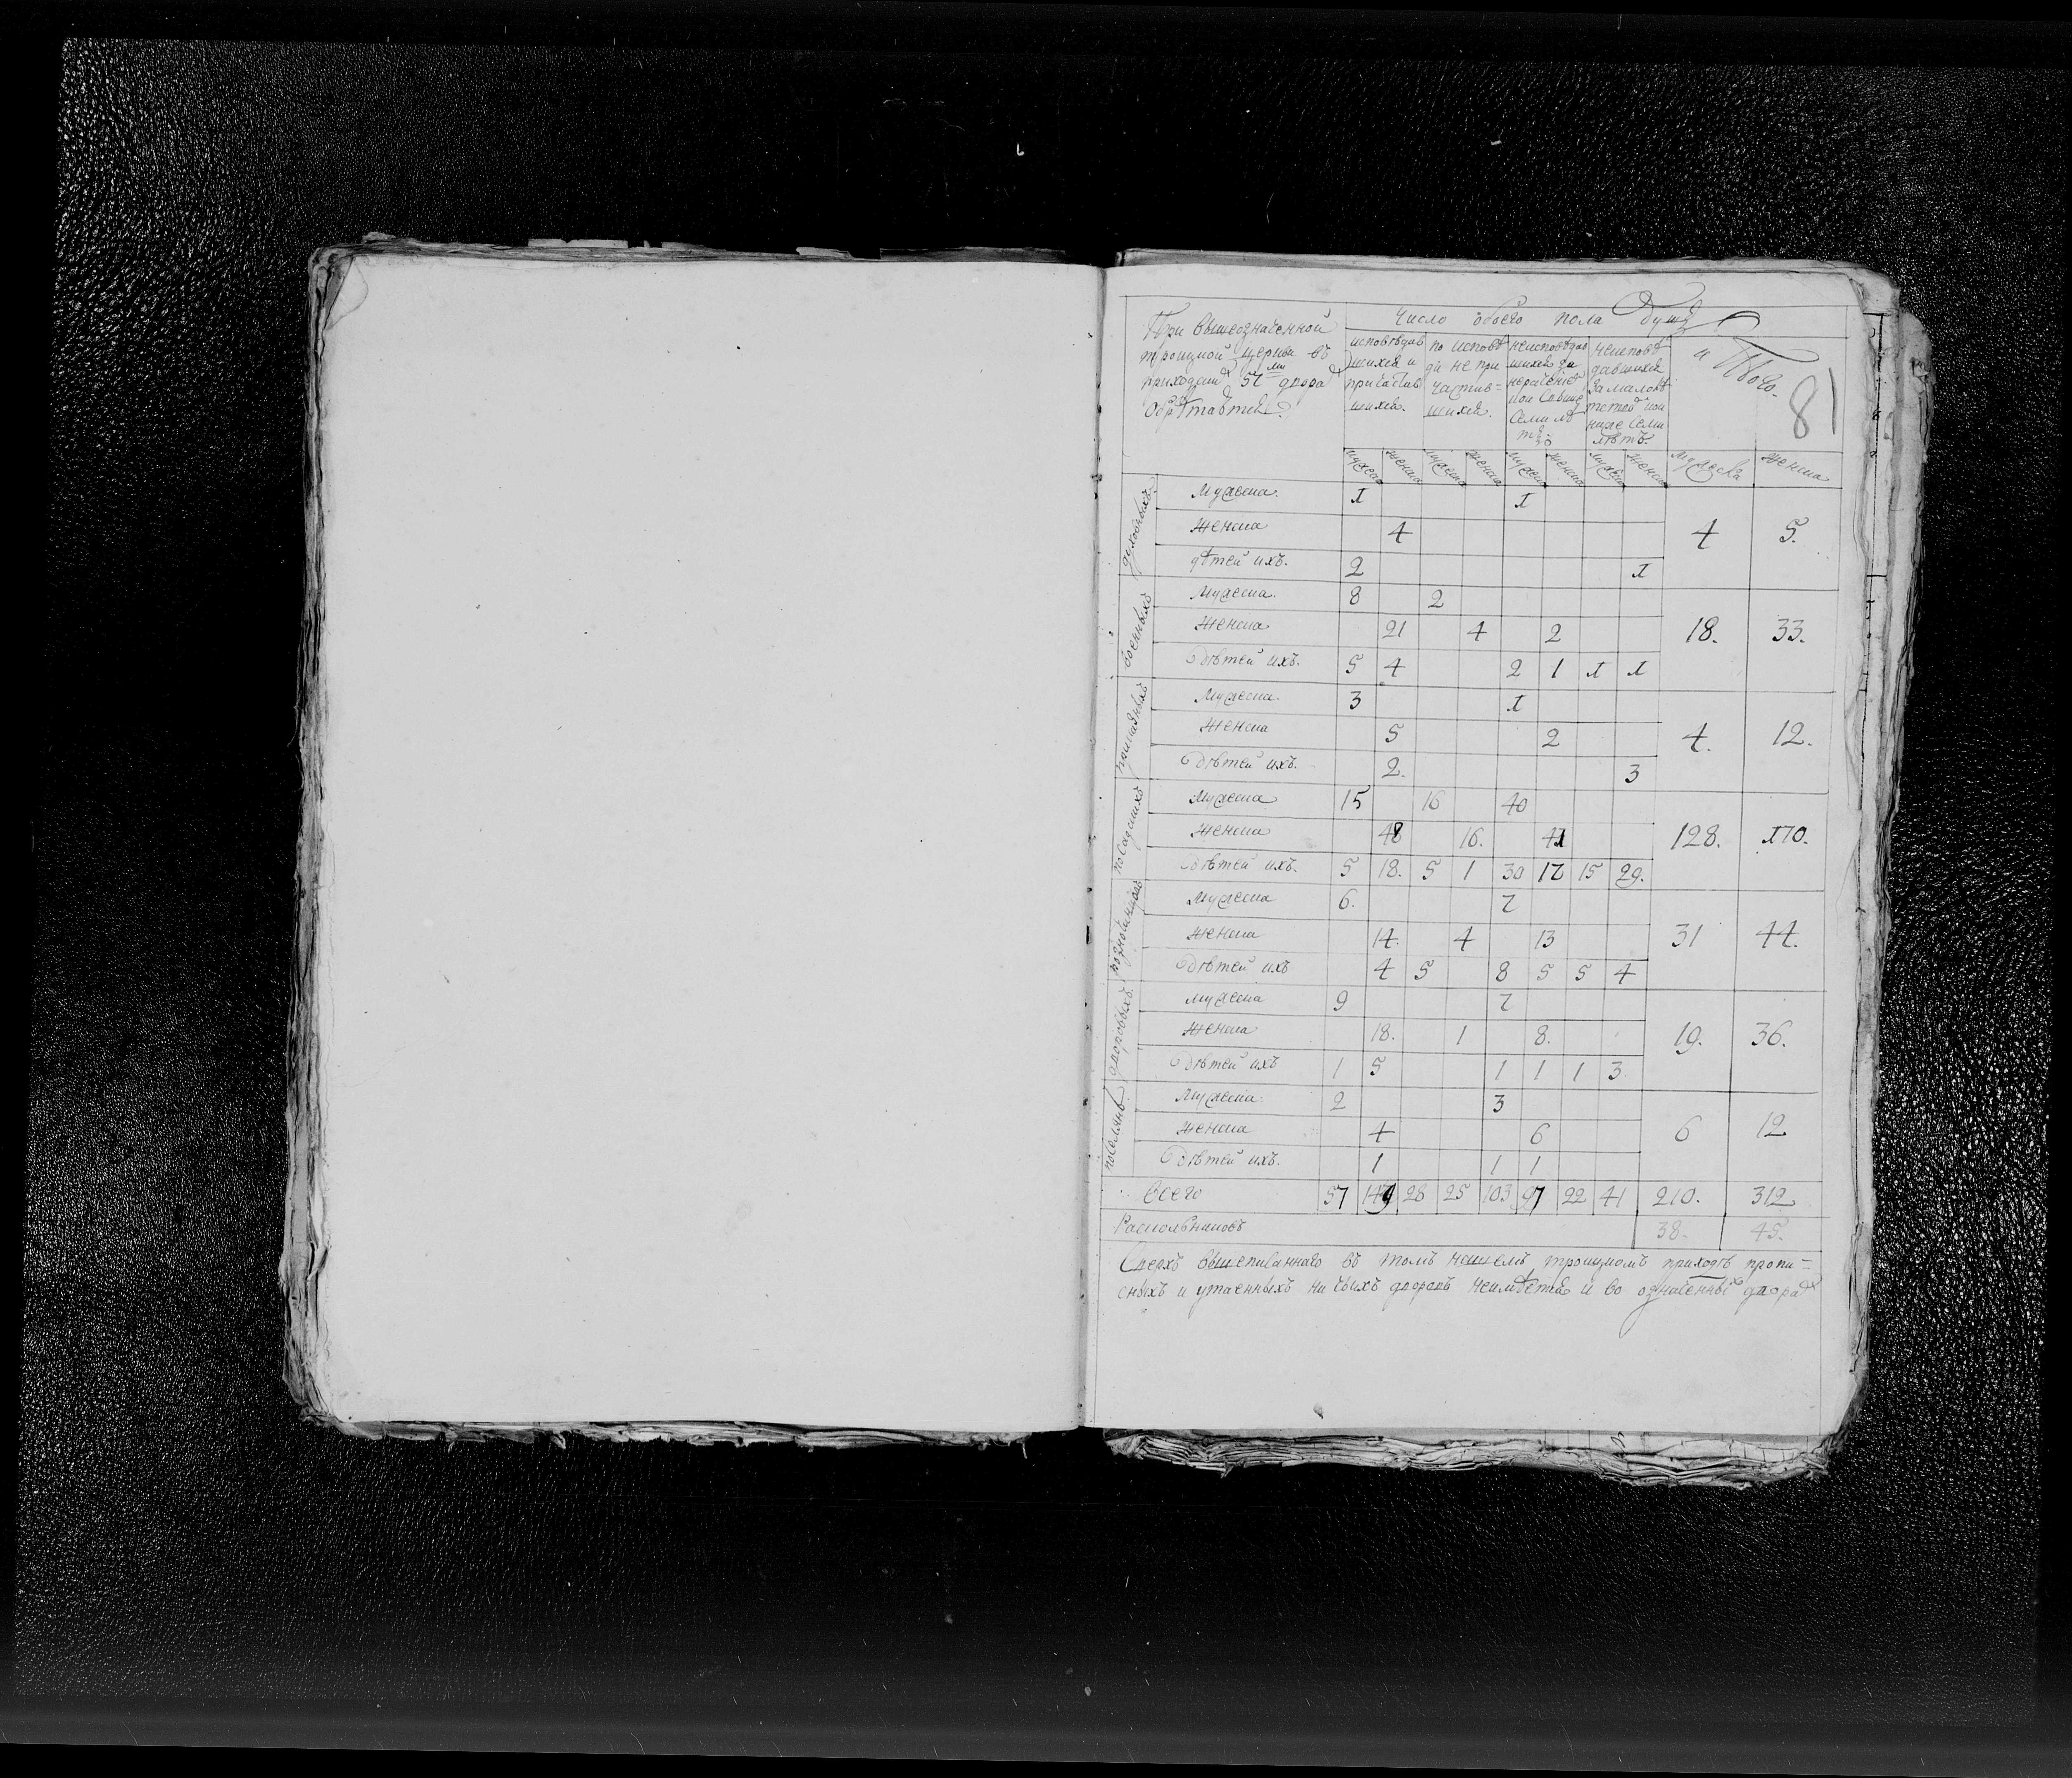 Число обоего пола душъ
При вышеозначенной
троицкой церкви въ
приходѣ 57ми дворахъ
обрѣтается
исповѣдав
шихся и
причастив
шихся.
по исповѣ
ди не при
частив=
шихся.
неисповѣдав
шихся за
нерачениѣ
Семи лѣ
неисповѣ
давшихся
за малолѣ
ниже семи
лѣтъ.
и Тво го.
81
мужеска женска мужеска женска мужеска женска мужеска женска мужеска женска
духовныхъ.
Мужеска. 1 1
Женска 4 4 5.
дѣтей ихъ. 2 1
военныхъ
Мужеска. 8 2
Женска 21 4 2 18. 33.
Дѣтей ихъ. 5 4 2 1 1 1
приказныхъ
Мужеска. 3 1
Женска 5 2 4. 12.
Дѣтей ихъ. 2. 3
посадскихъ
Мужеска 15 16 40
Женска 48 16. 41 128. 170.
Дѣтей ихъ. 5 18. 5 1 30 17 15 29.
разночинцовъ
Мужеска 6. 7
Женска 14. 4 13 31 44.
Дѣтей ихъ 4 5 8 5 5 4
дворовыхъ.
Мужеска 9 7
Женска 18. 1 8. 19. 36.
Дѣтей ихъ 1 5 1 1 1 3
поселянъ.
Мужеска. 2 3
Женска 4 6 6 12
Дѣтей ихъ. 1 1 1
Всего 57 149 28 25 103 97 22 41 210. 312
Раскольниковъ 38. 45.
Сверхъ вышеписаннаго въ томъ нашемъ троицкомъ приходѣ пропи=
сныхъ и утаенныхъ ни чьихъ дворовъ неимѣется и во означенныхъ дворахъ